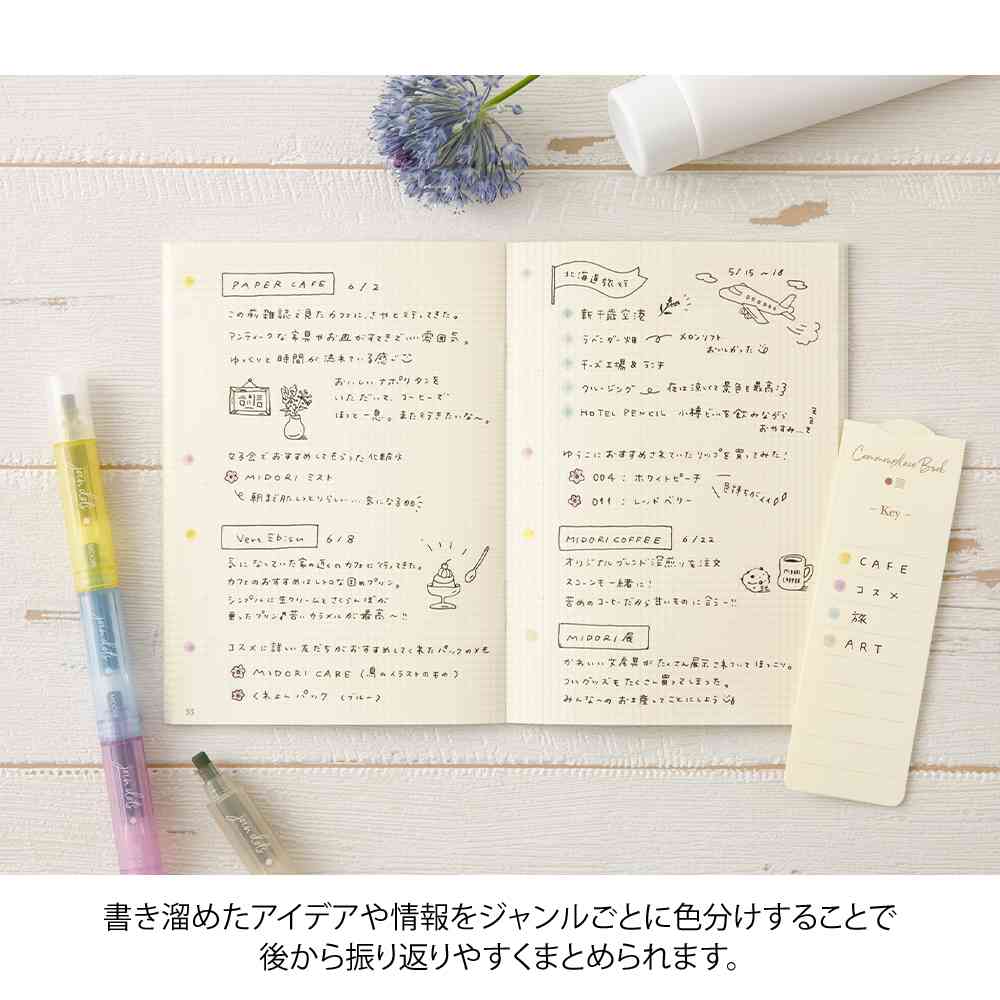 PAPER CAFE 6/2
この前雑誌で見たカフェに、さやと行ってきた。
アンティークな家具やお皿がすてきでいい雰囲気。
ゆっくりと時間が流れている感じ
おいしいナポリタンを
いただいて、コーヒーで
ほっと一息。また行きたいな〜。
女子会でおすすめしてもらった化粧水
MIDORI ミスト
朝までしっとりらしい… 気になる
Ven Ebisu 6/8
気になっていた家の近くのカフェに行ってきた。
カフェのおすすめはレトロな固めプリン。
シンプルに生クリームとさくらんぼが
乗ったプリン♪苦いカラメルが最高〜!!
コスメに詳しい友だちがおすすめしてくれたパックのメモ
MIDORI CARE (鳥のイラストのもの)
くれよんパック (ブルー)
53
北海道旅行
5/15 〜 18
新千歳空港
ラベンダー畑 メロンソフト
おいしかった
チーズ工場&ランチ
クルージング 夜は涼しくて景色も最高!
HOTEL PENCIL 小樽ビールを飲みながら
おやすみ...zzz
ゆうこにおすすめされていたリップを買ってみた!
004 : ホワイトピーチ
011 : レッドベリー
気持ちがいい
MIDORI COFFEE 6/22
オリジナルブレンド深煎りを注文
スコーンも一緒に!
苦めのコーヒーだから甘いものに合う〜!!
MIDORI COFFEE
MIDORI 展
かわいい文房具がたくさん展示されていてほっこり。
コラボグッズもたくさん買ってしまった。
みんなへのお土産ってことにしよう
Commonplace Book
– Key –
CAFE
コスメ
旅
ART
join dots
join dots
join dots
join dots
書き溜めたアイデアや情報をジャンルごとに色分けすることで
後から振り返りやすくまとめられます。